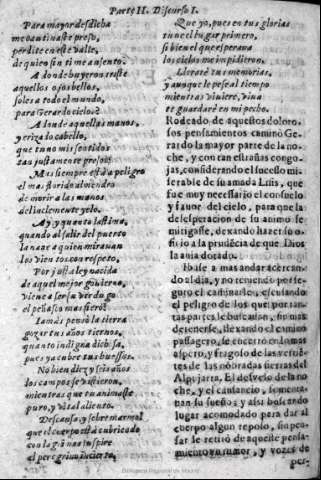 Parte II. Discurso I.
Para mayor desdicha
me cautivaste preso,
perdite en este valle,
de quien sin ti me ausento.
A donde huyeron triste
aquellos ojos bellos,
soles a todo el mundo,
para Gerardo cielos?
A donde aquellas manos,
y rizado cabello,
que tuvo mis sentidos
tan justamente presos?
Mas siempre está a peligro
el mas florido almendro
de morir a las manos
del inclemente yelo.
Ay, y quanto lastima,
quando al salir del puerto
la nave a quien miravan
los vientos con respeto,
Por justa ley nacida
de aquel mejor govierno,
viene a ser su verdugo
el peñasco mas fiero!
Iamàs pensò la tierra
gozar tus años tiernos,
quanto indigna dichosa,
pues ya cubre tus huessos.
No bien diez y seis años
los campos se vistieron,
mientras que tu animaste
puro, y vital aliento.
Descanso, y sobre marmol
que el cuerpo está cubriendo
con lagrimas inspire
al peregrino incierto,
Que yo, pues en tus glorias
tuve el lugar primero,
si bien el que esperava
los cielos me impidieron.
Lloraré tus memorias,
y aunque le pese al tiempo
mientras viviere, viva
te guardaré en mi pecho.
Rodeado de aquestos doloro-
sos pensamientos caminò Ge-
rardo la mayor parte de la no-
che, y con tan estrañas congo-
jas, considerando el sucesso mi-
serable de su amada Lisis, que
fue muy necessario el consuelo
y favor del cielo, para que la
desesperacion de su animo se
mitigasse, dexando hazer su o-
ficio a la prudẽcia de que Dios
le avia dorado.
Ibase a mas andar acercan-
do al dia, y no teniendo por se-
guro el caminarle, escusando
el peligro de los que por tan-
tas partes le buscavan, sin mas
detenerse, dexando el camino
passagero, se encerrò en lo mas
aspero, y fragoso de las verti-
tes de las nombradas sierras del
Alpujarra, El desvelo de la no-
che, y el cansancio, fomenta-
van su sueño; y assi buscando
lugar acomodado para dar al
cuerpo algun reposo, sin pen-
sar le retirò de aqueste pensa-
miento un rumor, y vozes de
per-
Biblioteca Regional de Madrid